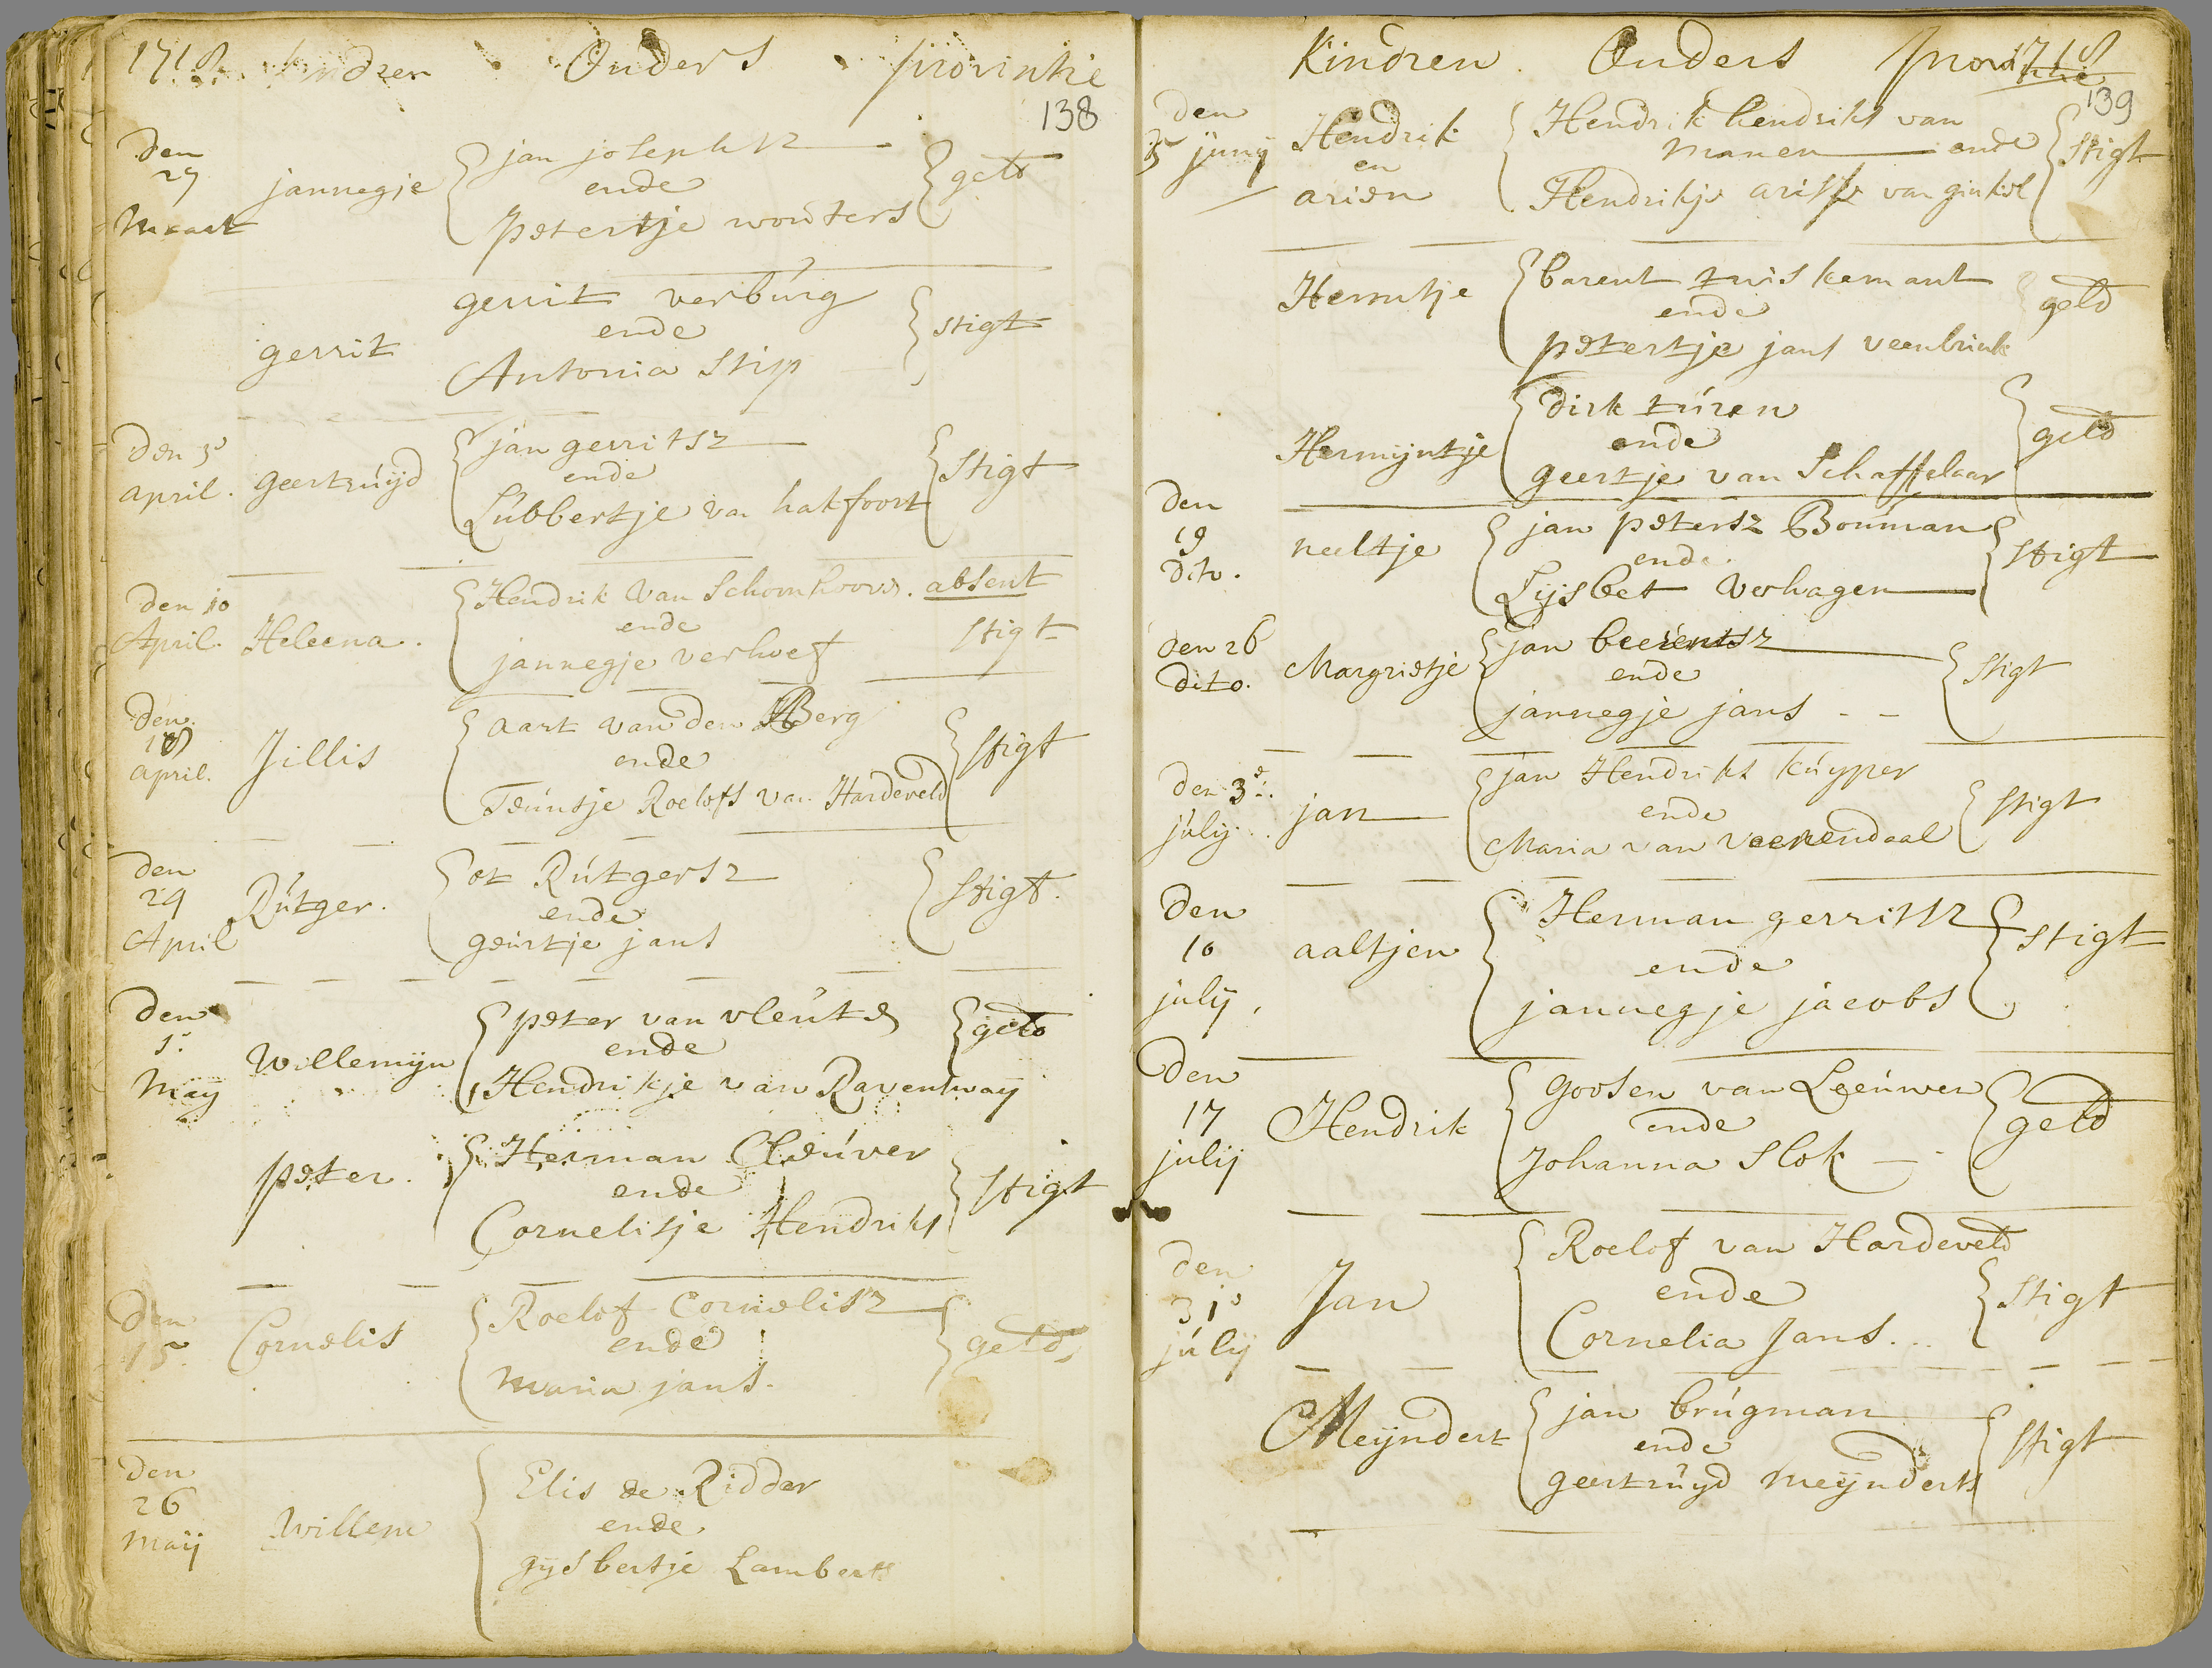 1718 Kindren Ouders provintie
138
den 27 Maart
jannegje
jan josephsz
ende
petertje wouters
geld
gerrit
gerrit verbúrg
ende
Antonia Stip
stigt
den 3e april.
geertrúijd
jan gerritsz
ende
Lúbbertje van hakfoort
Stigt
den 10 April.
Heleena.
Hendrik van Schoonhoove. absent
ende
jannegje verhoef
stigt
den april.
Jillis
Aart van den Berg
ende
Teúntje Roelofs van Hardeveld
Stigt
den 24 April
Rútger.
ot Rútgersz
ende
geúrtje jans
Stigt.
den 1. May
Willemijn
peter van vleúten
ende
Hendrikje van Ravenswaij
geld
peter.
Herman Cleúver
ende
Cornelisje Hendriks
Stigt
den 15
Cornelis
Roelof Cornelisz
ende
maria jans.
geld
den 26 Maij
willem
Elis de Ridder
ende
gijsbertje Lamberts
Kindren Ouders provintie
1718
139
den 5 junij
Hendrik
en
arien
Hendrik hendriks van
manen ende
Hendrikje arisse van ginkel
Stigt
Hermtje
barent
ende
petertje jans veenbrink
geld
Hermijntje
dirk túren
ende
geertje van Schaffelaar
geld
den 19 dito.
neeltje
jan petersz Bouman
ende
Lijsbet Verhagen
Stigt
den 26 dito.
Margrietje
jan beerentsz
ende
jannegje jans
Stigt
den 3e. júlij
jan
jan Hendriks kúyper
ende
Maria van Veenendaal
Stigt
den 10 julij,
aaltjen
Herman gerritsz
ende
jannegje jacobs
Stigt
den 17 julij
Hendrik
Goosen van Leeúwen
ende
Johanna Slok
geld
den 31e júlij
Jan
Roelof van Hardeveld
ende
Cornelia Jans.
Stigt
Meijndert
jan brúgman
ende
geertrúyd meijnderts
Stigt